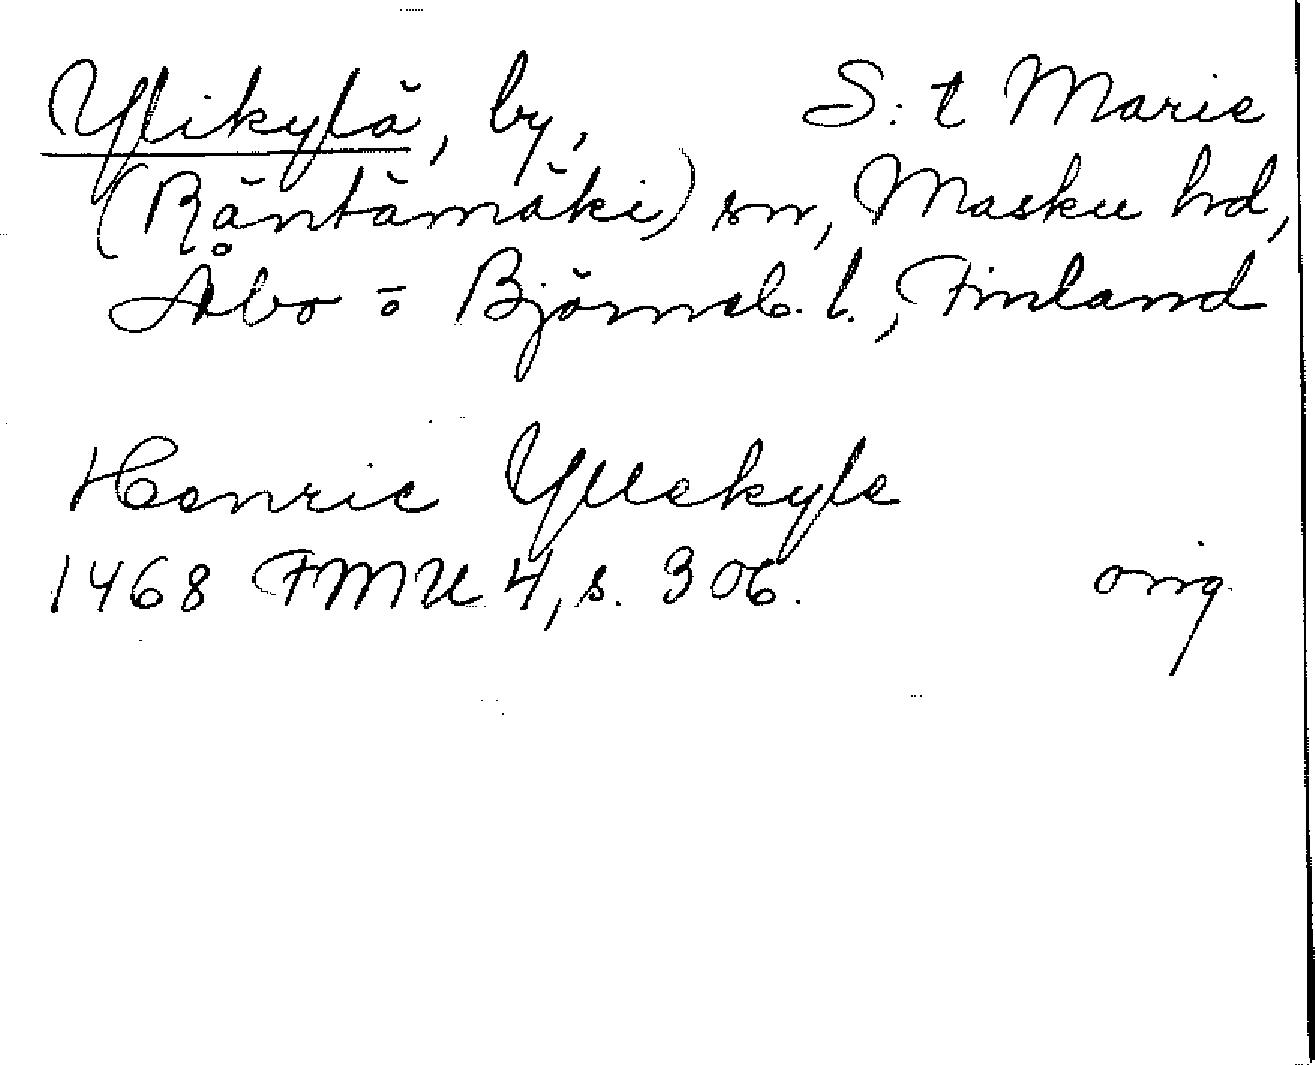 Ylikylä, by, S:t Marie
(Räntämäki) sn, Masku hd,
Åbo o Björneb. l., Finland
Henric Yllekyle
1468 FMU 4, s. 306. orig